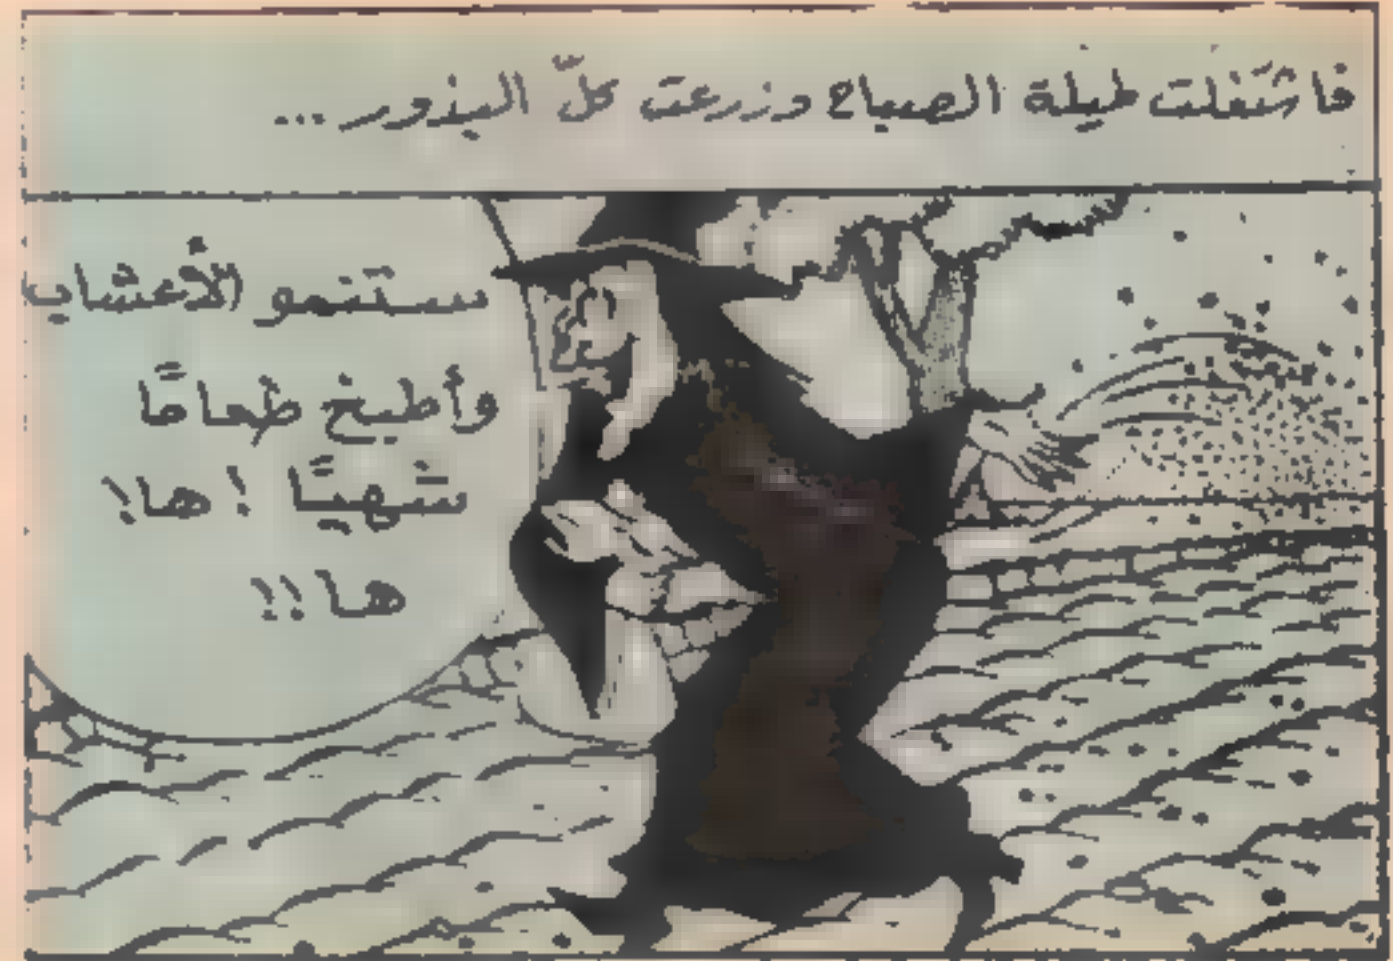 فاشتغلت طيلة الصباح وزرعت كلّ البذور...
ستنمو الأعشاب
وأطبخ طعامًا
شهيًا ! ها!
ها!!